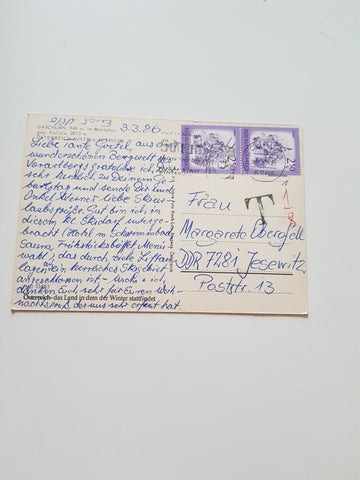 GASCHURN, 980 m, im Montafon,
geg. Vallüla, 2813 m
3.3.86
Liebe Tante Gretel, aus der
wunderschönen Bergwelt des
Vorarlbergs gratuliere ich Dir
sehr herzlich zu Deinem Ge-
burtstag und sende Dir und
Onkel Werner liebe Skiur-
laubsgrüße. Gut bin ich in
diesem kl. Skidorf unterge-
bracht (Hotel m. Schwimmbad,
Sauna, Frühstücksbüffet, Menü-
wahl), das durch viele Liftan-
lagen ein herrliches Skigebiet
erschlossen ist -
danken Euch sehr für Euren Weih-
nachtsgruß, der uns sehr erfreut hat.
Österreich - das Land in dem der Winter stattfindet
T
Frau
Margarete
DDR 7281 Jesewitz
Poststr. 13